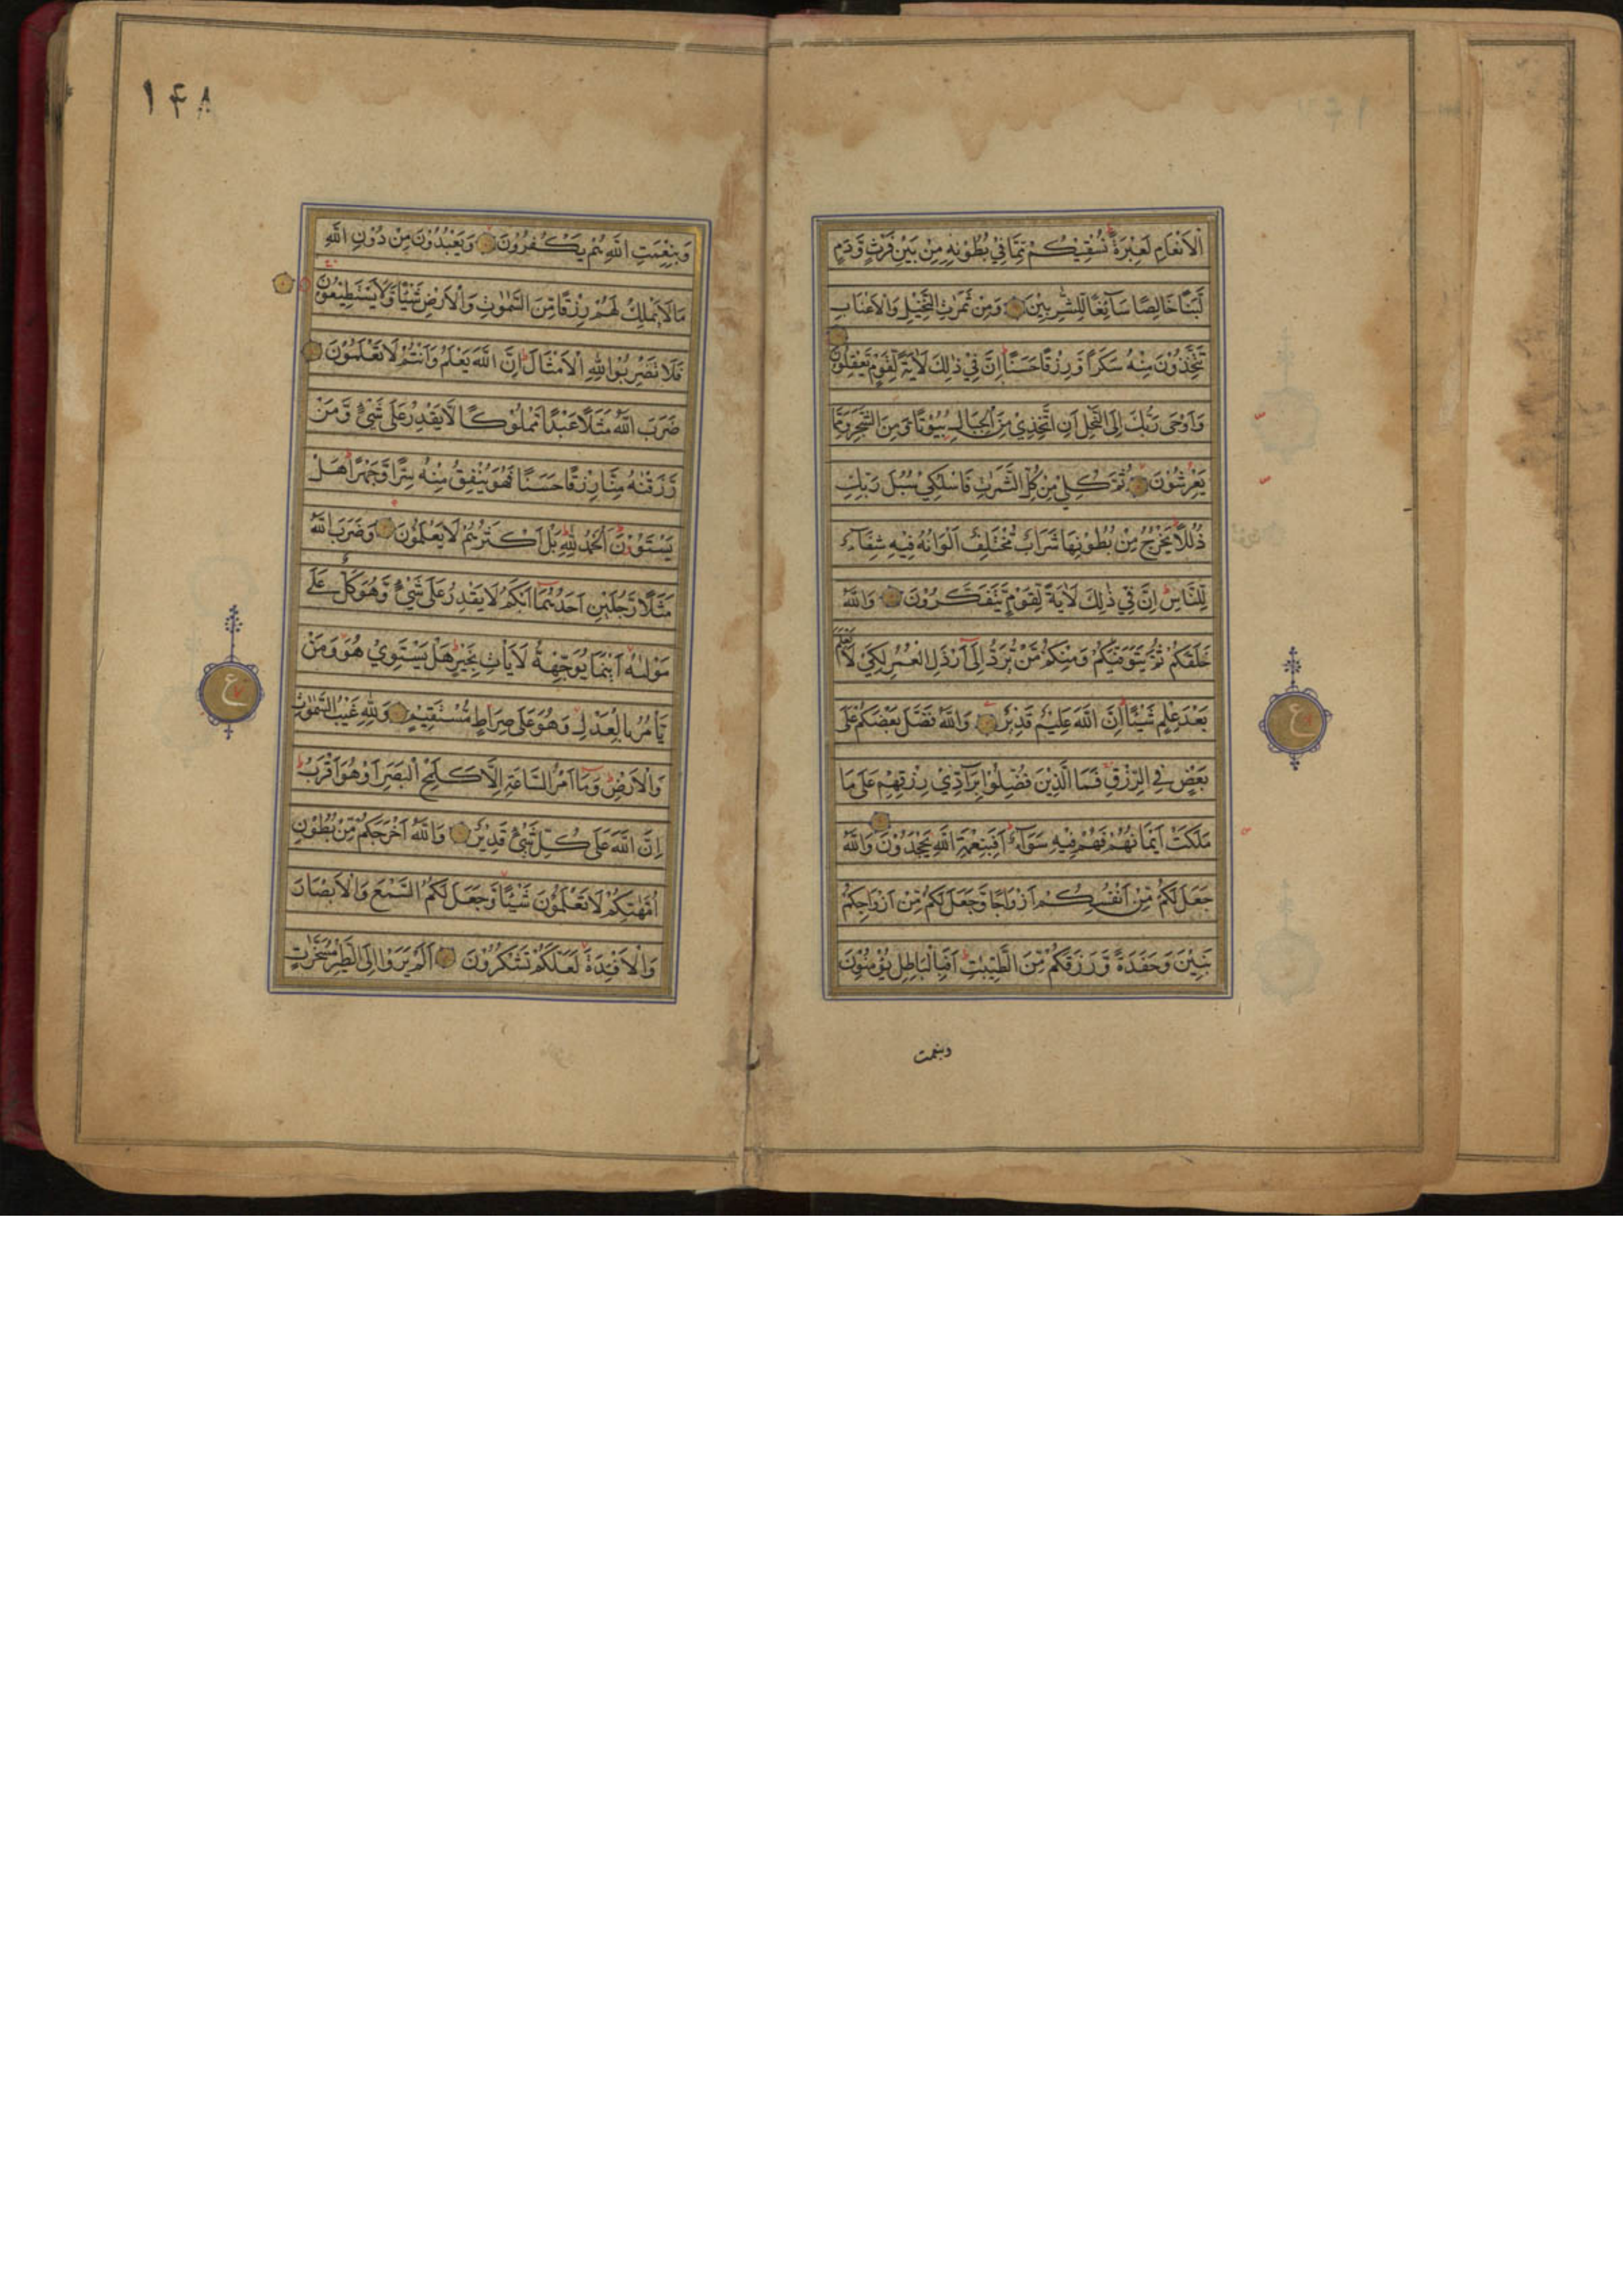 الْاَنْعَامِ لَعِبْرَةً نُسْقِيْكُمْ مِّمَّا فِيْ بُطُوْنِهٖ مِنْ بَيْنِ فَرْثٍ وَّدَمٍ
لَّبَنًا خَالِصًا سَآئِغًا لِّلشّٰرِبِيْنَ وَمِنْ ثَمَرٰتِ النَّخِيْلِ وَالْاَعْنَابِ
تَتَّخِذُوْنَ مِنْهُ سَكَرًا وَّرِزْقًا حَسَنًا اِنَّ فِيْ ذٰلِكَ لَاٰيَةً لِّقَوْمٍ يَّعْقِلُوْنَ
وَاَوْحٰى رَبُّكَ اِلَى النَّحْلِ اَنِ اتَّخِذِيْ مِنَ الْجِبَالِ بُيُوْتًا وَّمِنَ الشَّجَرِ وَمِمَّا
يَعْرِشُوْنَ ثُمَّ كُلِيْ مِنْ كُلِّ الثَّمَرٰتِ فَاسْلُكِيْ سُبُلَ رَبِّكِ
ذُلُلًا يَخْرُجُ مِنْ بُطُوْنِهَا شَرَابٌ مُّخْتَلِفٌ اَلْوَانُهٗ فِيْهِ شِفَآءٌ
لِّلنَّاسِ اِنَّ فِيْ ذٰلِكَ لَاٰيَةً لِّقَوْمٍ يَّتَفَكَّرُوْنَ وَاللّٰهُ
خَلَقَكُمْ ثُمَّ يَتَوَفّٰىكُمْ وَمِنْكُمْ مَّنْ يُّرَدُّ اِلٰٓى اَرْذَلِ الْعُمُرِ لِكَيْ لَا يَعْلَمَ
بَعْدَ عِلْمٍ شَيْـًٔا اِنَّ اللّٰهَ عَلِيْمٌ قَدِيْرٌ وَاللّٰهُ فَضَّلَ بَعْضَكُمْ عَلٰى
بَعْضٍ فِي الرِّزْقِ فَمَا الَّذِيْنَ فُضِّلُوْا بِرَآدِّيْ رِزْقِهِمْ عَلٰى مَا
مَلَكَتْ اَيْمَانُهُمْ فَهُمْ فِيْهِ سَوَآءٌ اَفَبِنِعْمَةِ اللّٰهِ يَجْحَدُوْنَ وَاللّٰهُ
جَعَلَ لَكُمْ مِّنْ اَنْفُسِكُمْ اَزْوَاجًا وَّجَعَلَ لَكُمْ مِّنْ اَزْوَاجِكُمْ
بَنِيْنَ وَحَفَدَةً وَّرَزَقَكُمْ مِّنَ الطَّيِّبٰتِ اَفَبِالْبَاطِلِ يُؤْمِنُوْنَ
وبنعمت
ع
۱۴۸
وَبِنِعْمَتِ اللّٰهِ هُمْ يَكْفُرُوْنَ وَيَعْبُدُوْنَ مِنْ دُوْنِ اللّٰهِ
مَا لَا يَمْلِكُ لَهُمْ رِزْقًا مِّنَ السَّمٰوٰتِ وَالْاَرْضِ شَيْـًٔا وَّلَا يَسْتَطِيْعُوْنَ
فَلَا تَضْرِبُوْا لِلّٰهِ الْاَمْثَالَ اِنَّ اللّٰهَ يَعْلَمُ وَاَنْتُمْ لَا تَعْلَمُوْنَ
ضَرَبَ اللّٰهُ مَثَلًا عَبْدًا مَّمْلُوْكًا لَّا يَقْدِرُ عَلٰى شَيْءٍ وَّمَنْ
رَّزَقْنٰهُ مِنَّا رِزْقًا حَسَنًا فَهُوَ يُنْفِقُ مِنْهُ سِرًّا وَّجَهْرًا هَلْ
يَسْتَوٗنَ اَلْحَمْدُ لِلّٰهِ بَلْ اَكْثَرُهُمْ لَا يَعْلَمُوْنَ وَضَرَبَ اللّٰهُ
مَثَلًا رَّجُلَيْنِ اَحَدُهُمَآ اَبْكَمُ لَا يَقْدِرُ عَلٰى شَيْءٍ وَّهُوَ كَلٌّ عَلٰى
مَوْلٰىهُ اَيْنَمَا يُوَجِّهْهُ لَا يَأْتِ بِخَيْرٍ هَلْ يَسْتَوِيْ هُوَ وَمَنْ
يَّأْمُرُ بِالْعَدْلِ وَهُوَ عَلٰى صِرَاطٍ مُّسْتَقِيْمٍ وَلِلّٰهِ غَيْبُ السَّمٰوٰتِ
وَالْاَرْضِ وَمَآ اَمْرُ السَّاعَةِ اِلَّا كَلَمْحِ الْبَصَرِ اَوْ هُوَ اَقْرَبُ
اِنَّ اللّٰهَ عَلٰى كُلِّ شَيْءٍ قَدِيْرٌ وَاللّٰهُ اَخْرَجَكُمْ مِّنْ بُطُوْنِ
اُمَّهٰتِكُمْ لَا تَعْلَمُوْنَ شَيْـًٔا وَّجَعَلَ لَكُمُ السَّمْعَ وَالْاَبْصَارَ
وَالْاَفْـِٕدَةَ لَعَلَّكُمْ تَشْكُرُوْنَ اَلَمْ يَرَوْا اِلَى الطَّيْرِ مُسَخَّرٰتٍ
ع